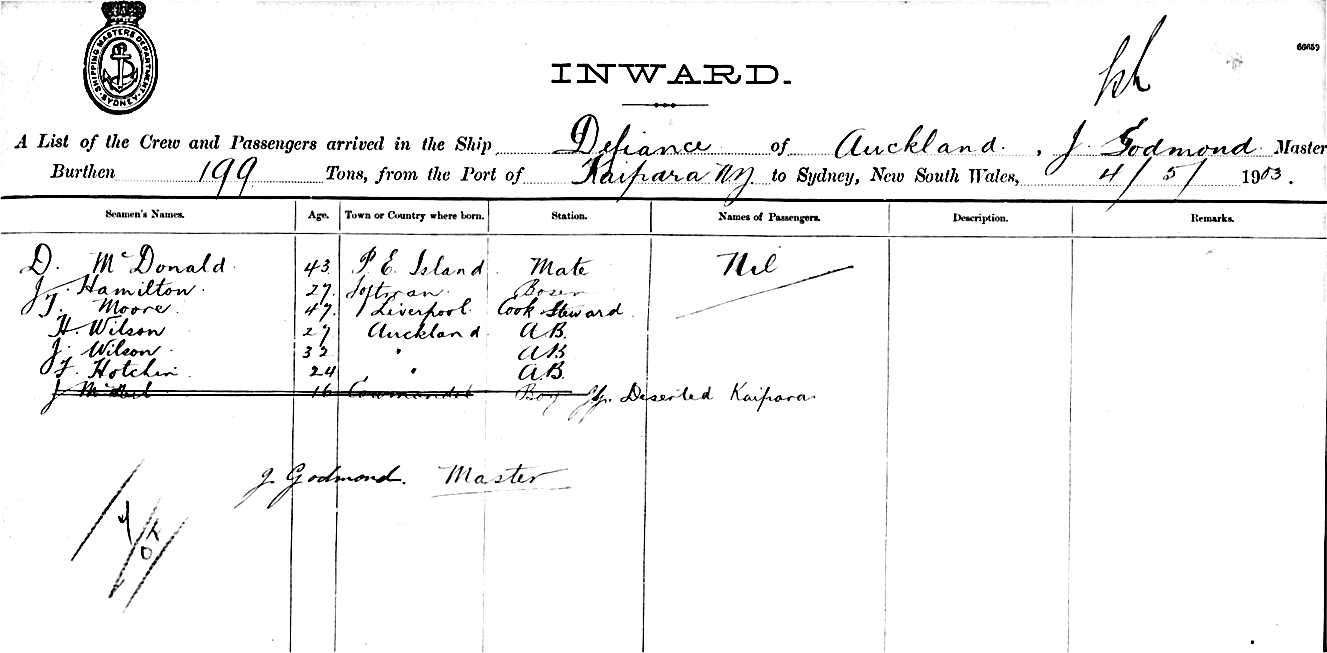 SHIPPING MASTERS DEPARTMENT · SYDNEY ·
66659
INWARD.
A List of the Crew and Passengers arrived in the Ship Defiance of Auckland, J Godmond Master
Burthen 199 Tons, from the Port of Kaipara NZ to Sydney, New South Wales, 4/5/ 1903.
Seamen's Names. Age. Town or Country where born. Station. Names of Passengers. Description. Remarks.
D. McDonald 43 P. E. Island Mate Nil
J. Hamilton 27 Bosun
T. Moore 47 Liverpool Cook Steward
H. Wilson 27 Auckland A.B.
J. Wilson 32 " A.B.
F. Hotchin 24 " A.B.
J 16 Boy Deserted Kaipara
J. Godmond. Master